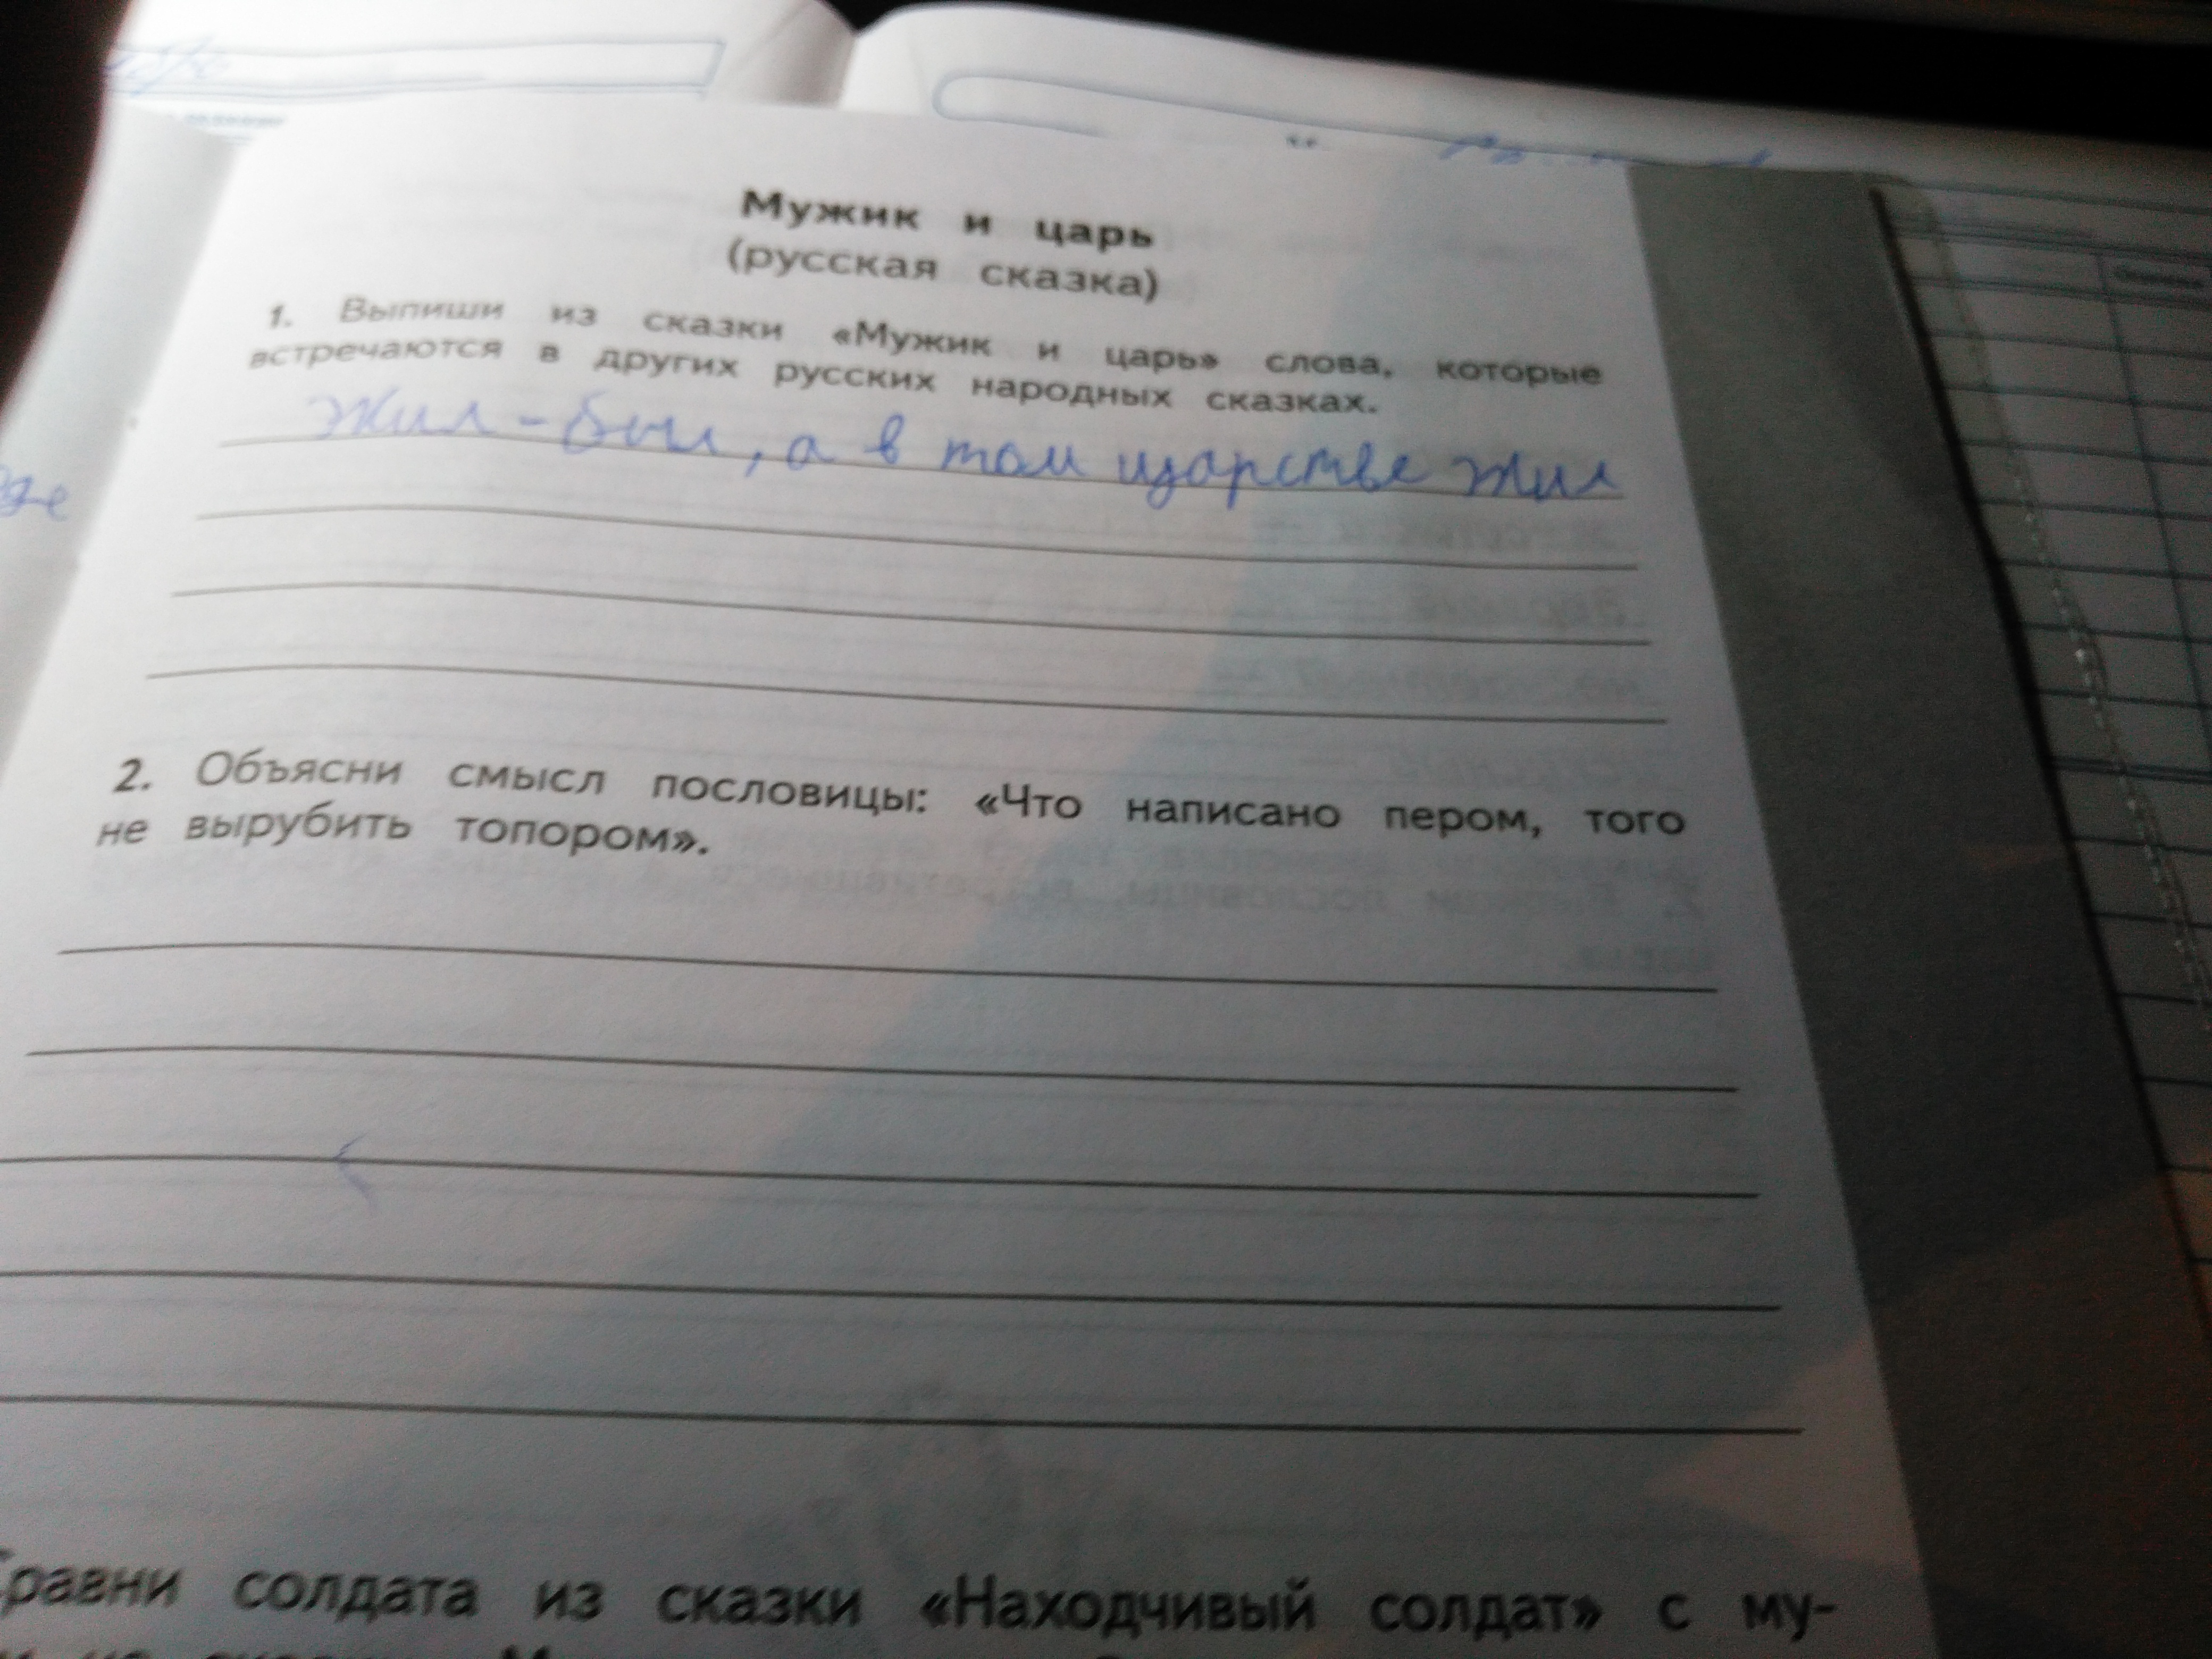 Мужик и царь
(русская сказка)
1. Выпиши из сказки «Мужик и царь» слова, которые
встречаются в других русских народных сказках.
Жил-был, а в том царстве жил
2. Объясни смысл пословицы: «Что написано пером, того
не вырубить топором».
Сравни солдата из сказки «Находчивый солдат» с му-